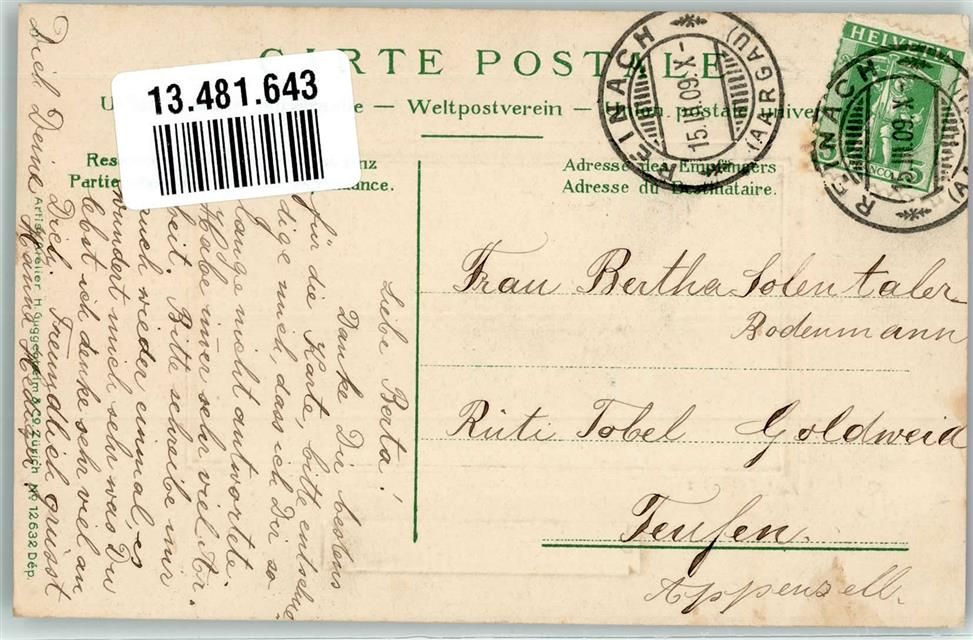 CARTE POSTALE
— Weltpostverein — Union postale univer
13.481.643
Adresse des Empfängers
Adresse du Destinataire.
REINACH
15.III.09.X-
(AARGAU)
HELVETIA
REINACH
15.III.09.X-
Frau Bertha Solentaler
Bodenmann
Rüti Tobel Goldweid
Teufen.
Appenzell.
Liebe Berta!
Danke Dir bestens
für die Karte, bitte entschul
dige mich, dass ich Dir so
lange nicht antwortete.
Habe immer sehr viel Ar-
beit. Bitte schreibe mir
auch wieder einmal, es
wundert mich sehr was Du
lebst ich denke sehr viel an
Dich. Freundlich grüsst
Dich Deine
Hanna
Artist. Atelier H. Guggenheim & Co. Zürich No 12632 Dép.